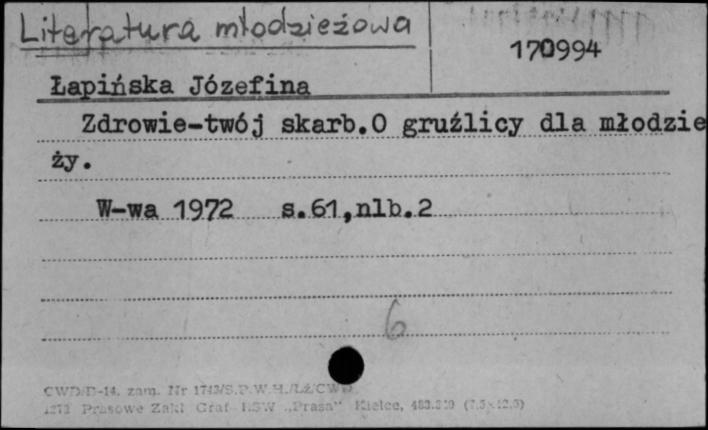 Literatura młodzieżowa
170994
Łapińska Józefina
Zdrowie-twój skarb.O gruźlicy dla młodzie
ży.
W-wa 1972 s.61,nlb.2
6
CWD/D-14. zam. Nr
Prasowe Zakł Graf RSW „Prasa" Kielce,